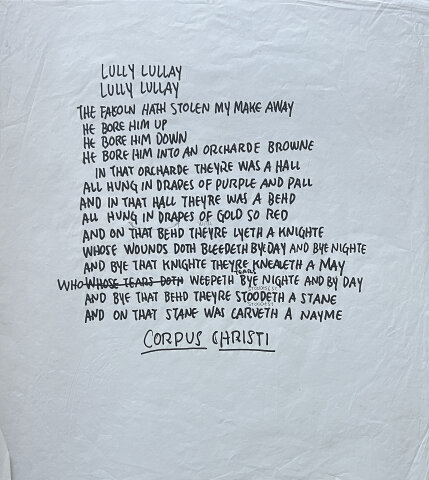 LULLY LULLAY
LULLY LULLAY
THE FAKOLN HATH STOLEN MY MAKE AWAY
HE BORE HIM UP
HE BORE HIM DOWN
HE BORE HIM INTO AN ORCHARDE BROWNE
IN THAT ORCHARDE THEYRE WAS A HALL
ALL HUNG IN DRAPES OF PURPLE AND PALL
AND IN THAT HALL THEYRE WAS A BEHD
ALL HUNG IN DRAPES OF GOLD SO RED
AND ON THAT BEHD THEYRE LYETH A KNIGHTE
WHOSE WOUNDS DOTH BLEEDETH BYE DAY AND BYE NIGHTE
AND BYE THAT KNIGHTE THEYRE KNEALETH A MAY
WHO WHOSE TEARS DOTH WEEPETH BYE NIGHTE AND BY DAY
AND BYE THAT BEHD THEYRE STOODETH A STANE
AND ON THAT STANE WAS CARVETH A NAYME
CORPUS CHRISTI